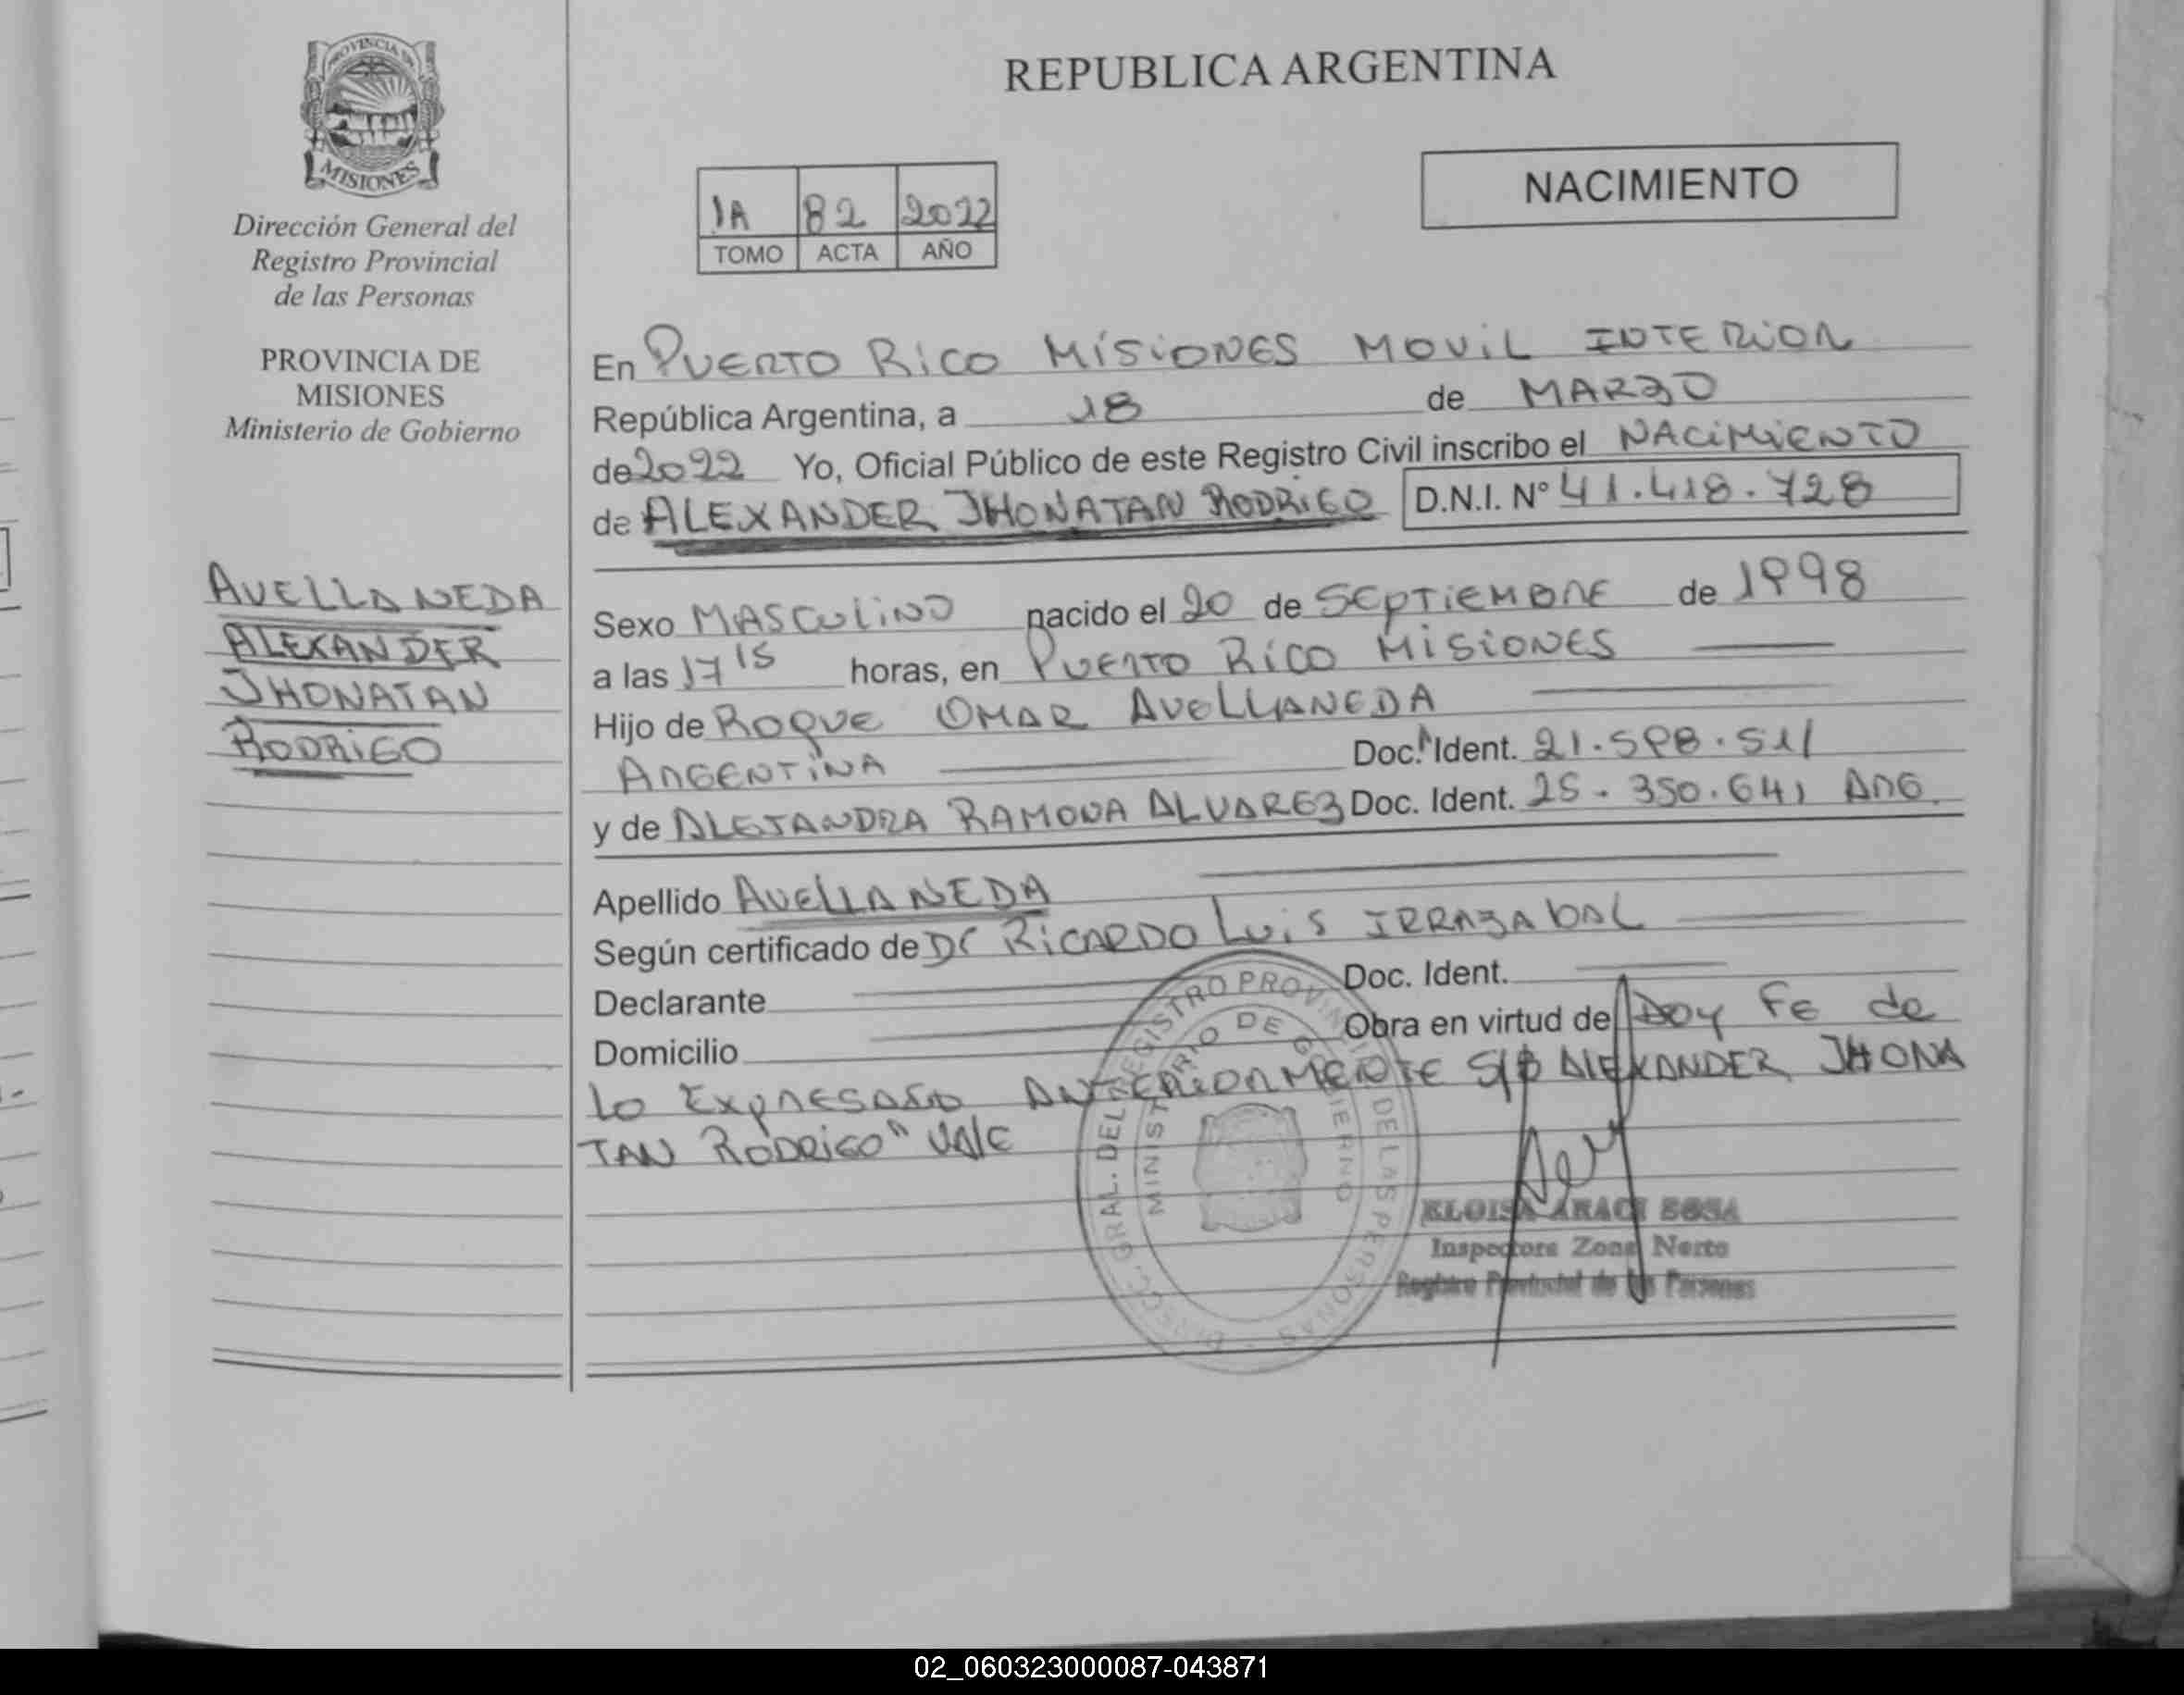 PROVINCIA DE
MISIONES
Dirección General del
Registro Provincial
de las Personas
PROVINCIA DE
MISIONES
Ministerio de Gobierno
AVELLANEDA
ALEXANDER
JHONATAN
RODRIGO
REPUBLICA ARGENTINA
NACIMIENTO
1A 82 2022
TOMO ACTA AÑO
En PUERTO RICO MISIONES MOVIL INTERIOR
República Argentina, a 18 de MARZO
de 2022 Yo, Oficial Público de este Registro Civil inscribo el NACIMIENTO
de ALEXANDER JHONATAN RODRIGO D.N.I. N° 41.418.728
Sexo MASCULINO nacido el 20 de SEPTIEMBRE de 1998
a las 17 15 horas, en PUERTO RICO MISIONES
Hijo de ROQUE OMAR AVELLANEDA
ARGENTINA Doc. Ident. 21.598.511
y de ALEJANDRA RAMONA ALVAREZ Doc. Ident. 25.350.641 ARG.
Apellido AVELLANEDA
Según certificado de Dr RICARDO LUIS IRRAZABAL
Declarante Doc. Ident.
Domicilio Obra en virtud de Doy FE de
Lo EXPRESADO ANTERIORMENTE S/B ALEXANDER JHONA
TAN RODRIGO" VALE
DIRECC. GRAL. DEL REGISTRO PROVINCIAL DE LAS PERSONAS
MINISTERIO DE GOBIERNO
ELOISA ARACI SOSA
Inspectora Zona Norte
Registro Provincial de las Personas
02_060323000087-043871